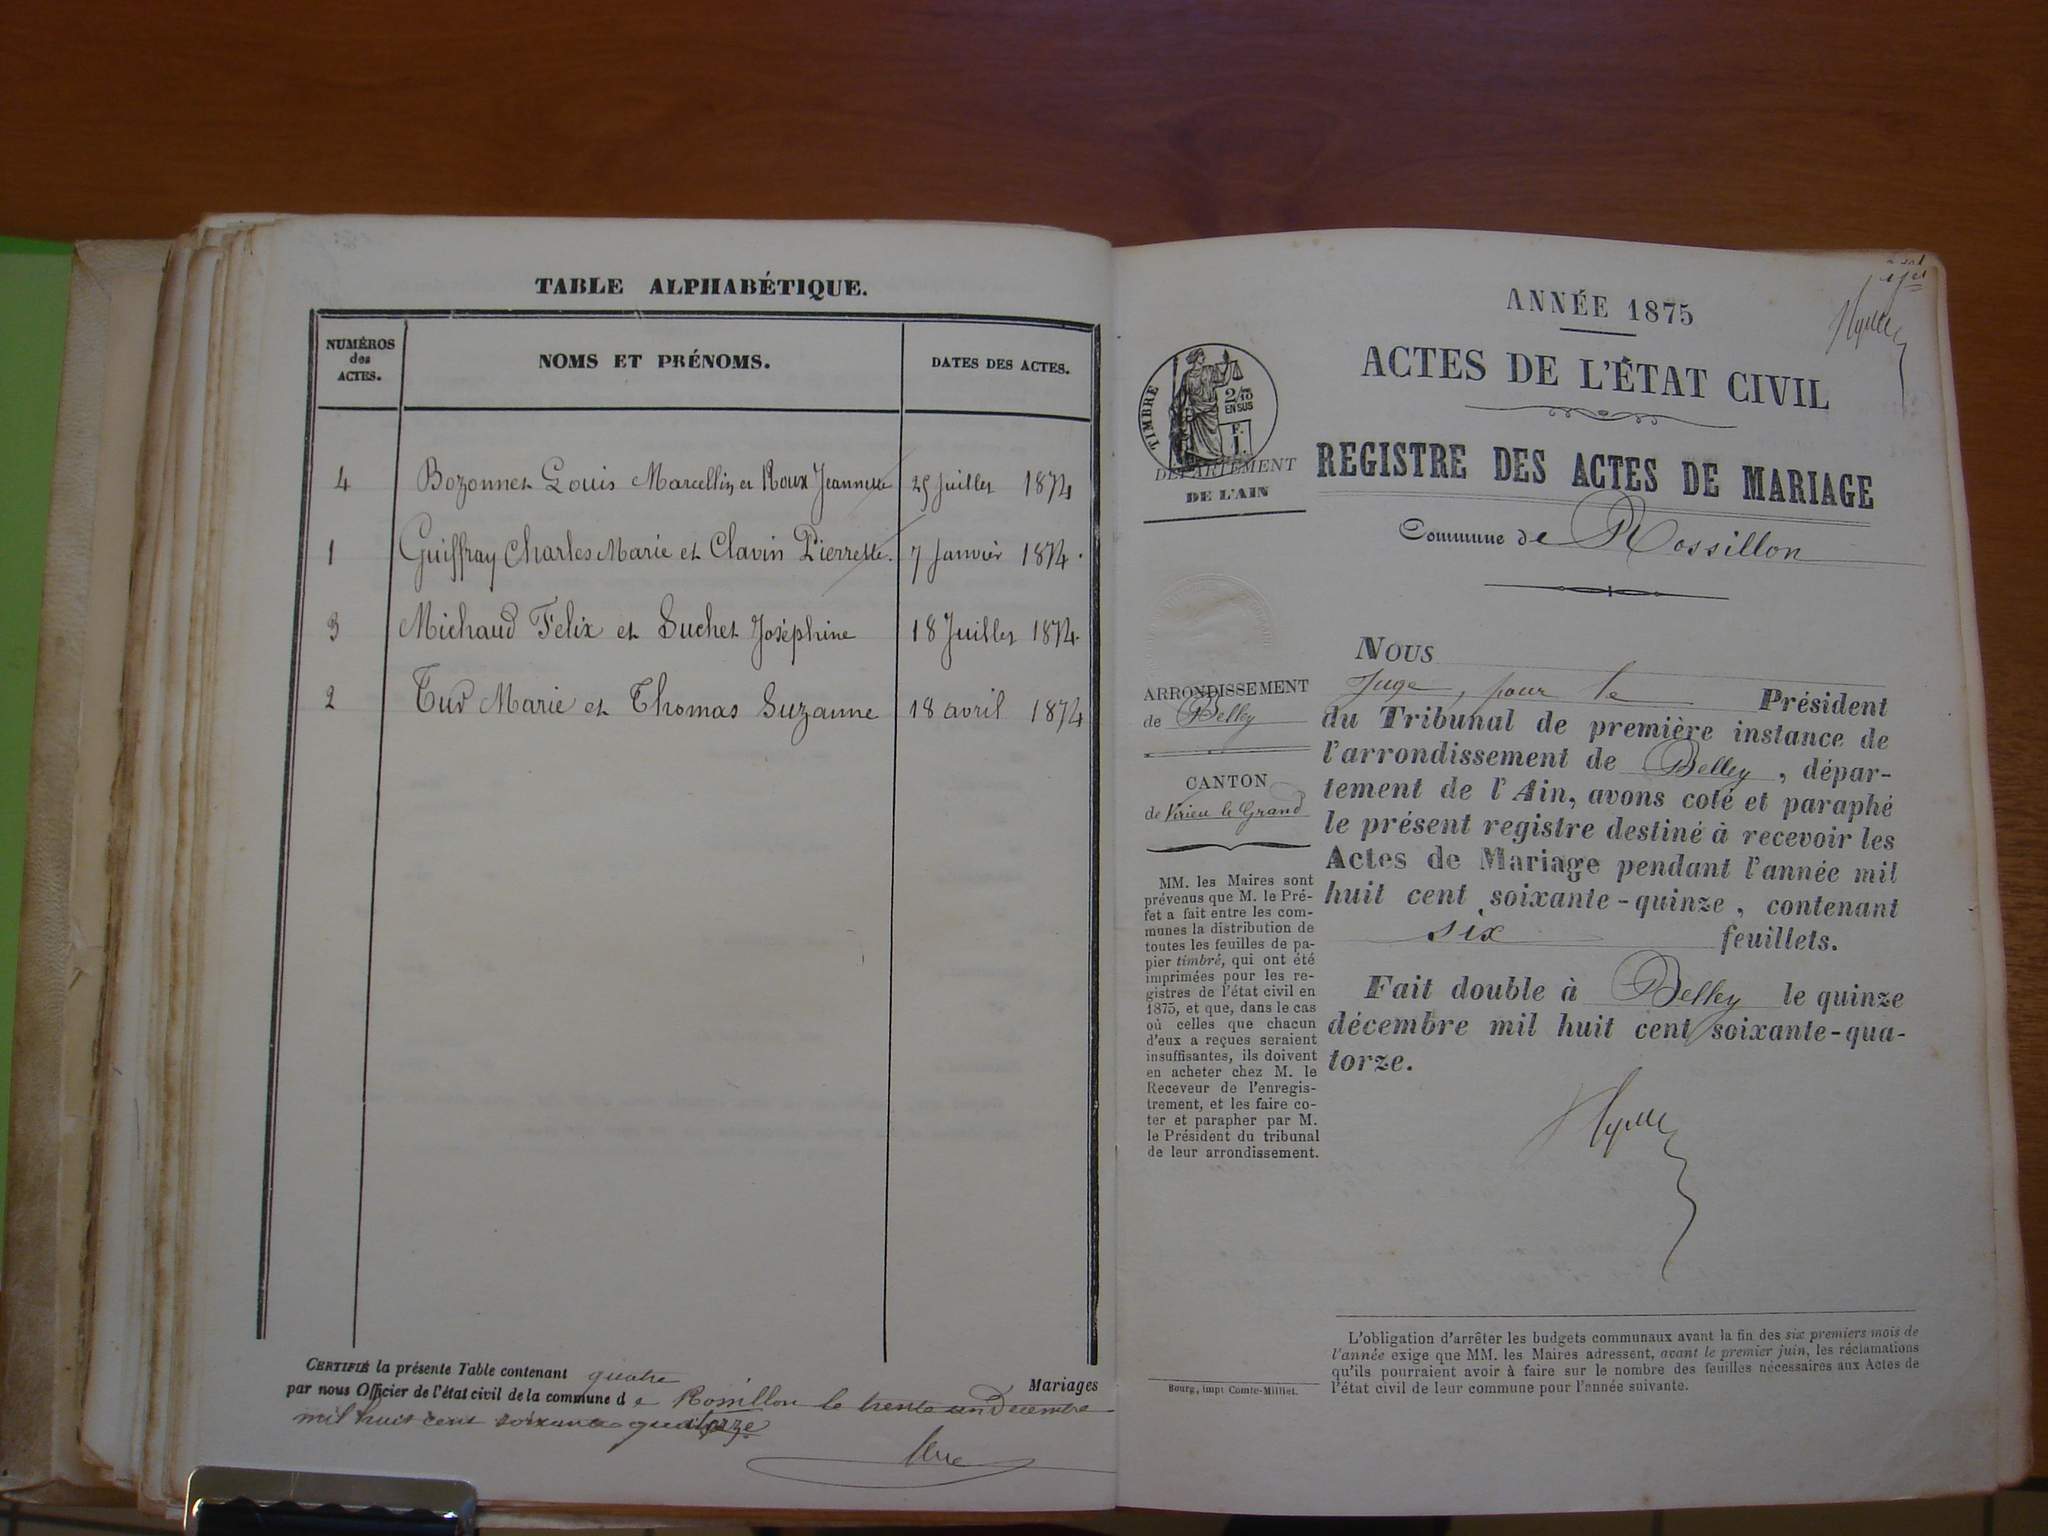 TABLE ALPHABÉTIQUE.
NUMÉROS
des
ACTES.
NOMS ET PRÉNOMS.
DATES DES ACTES.
4 Bozonnet Louis Marcellin et Roux Jeannette 25 Juillet 1874
1 Guiffray Charles Marie et Clavin Pierrette. 7 Janvier 1874.
3 Michaud Felix et Suchet Joséphine 18 Juillet 1874.
2 Marie et Thomas Suzanne 18 avril 1874
CERTIFIÉ la présente Table contenant quatre Mariages
par nous Officier de l'état civil de la commune de Rossillon le trente un Decembre
mil huit cent soixante quatorze
ANNÉE 1875
ACTES DE L'ÉTAT CIVIL
REGISTRE DES ACTES DE MARIAGE
Commune de Rossillon
TIMBRE
2/10
EN SUS
F.
1.
DÉPARTEMENT
DE L'AIN
ARRONDISSEMENT
de Belley
CANTON
de Virieu le Grand
MM. les Maires sont
prévenus que M. le Pré-
fet a fait entre les com-
munes la distribution de
toutes les feuilles de pa-
pier timbré, qui ont été
imprimées pour les re-
gistres de l'état civil en
1875, et que, dans le cas
où celles que chacun
d'eux a reçues seraient
insuffisantes, ils doivent
en acheter chez M. le
Receveur de l'enregis-
trement, et les faire co-
ter et parapher par M.
le Président du tribunal
de leur arrondissement.
Bourg, imp. Comte-Milliet.
NOUS
Juge, pour le Président
du Tribunal de première instance de
l'arrondissement de Belley, dépar-
tement de l'Ain, avons coté et paraphé
le présent registre destiné à recevoir les
Actes de Mariage pendant l'année mil
huit cent soixante-quinze, contenant
six feuillets.
Fait double à Belley le quinze
décembre mil huit cent soixante-qua-
torze.
L'obligation d'arrêter les budgets communaux avant la fin des six premiers mois de
l'année exige que MM. les Maires adressent, avant le premier juin, les réclamations
qu'ils pourraient avoir à faire sur le nombre des feuilles nécessaires aux Actes de
l'état civil de leur commune pour l'année suivante.